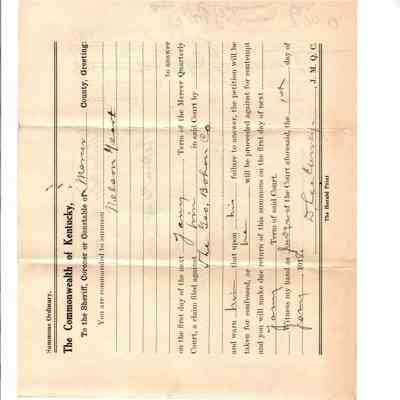 Summons Ordinary.
The Commonwealth of Kentucky,
To the Sheriff, Coroner or Constable of Mercer County, Greeting:
You are commanded to summon Nelson Yeast
to answer
on the first day of the next Jany Term of the Mercer Quarterly
Court, a claim filed against him in said Court by
The Geo. Bohon Co
and warn him that upon his failure to answer, the petition will be
taken for confessed, or he will be proceeded against for contempt
and you will make due return of this summons on the first day of next
Jany Term of said Court.
Witness my hand as Judge of the Court aforesaid, the 1st day of
Jany 191
J. M. Q. C.
The Herald Print